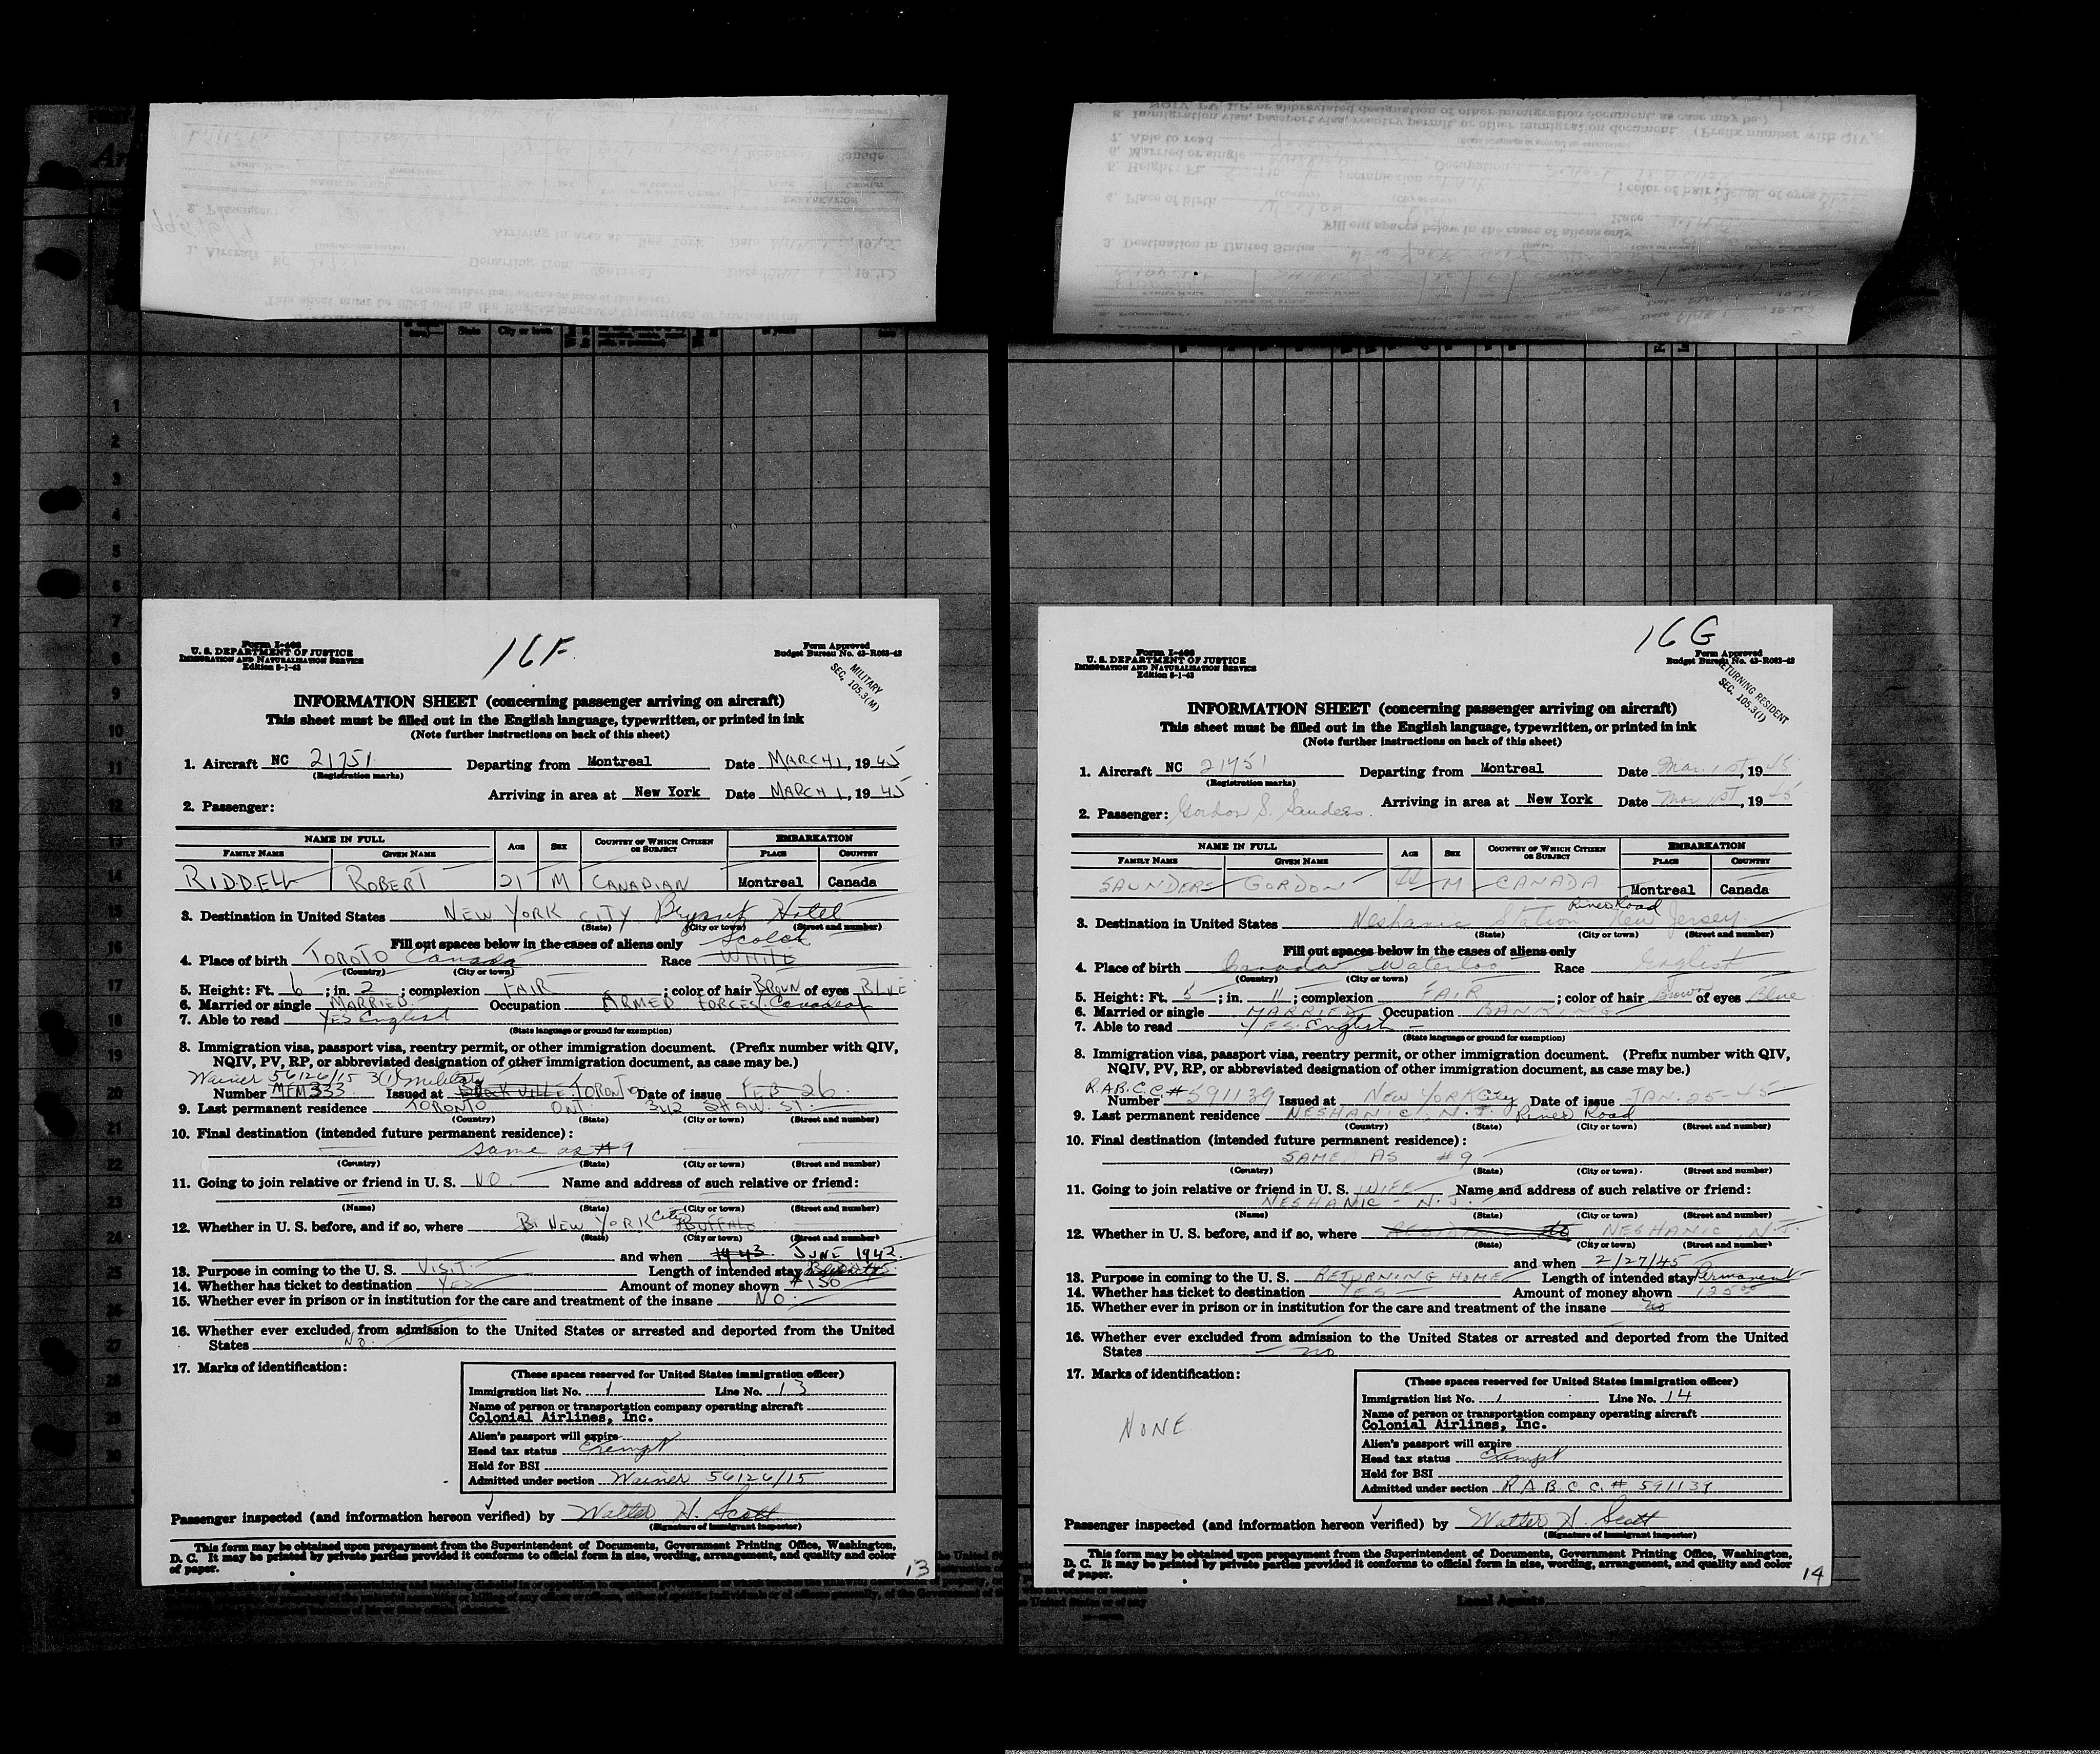 Form I-466
U. S. DEPARTMENT OF JUSTICE
IMMIGRATION AND NATURALIZATION SERVICE
Edition 5-1-43
16F
Form Approved
Budget Bureau No. 43-R083-43
MILITARY
SEC. 105.3(M)
INFORMATION SHEET (concerning passenger arriving on aircraft)
This sheet must be filled out in the English language, typewritten, or printed in ink
(Note further instructions on back of this sheet)
1. Aircraft NC 21751 Departing from Montreal Date MARCH 1, 1945
(Registration marks)
Arriving in area at New York Date MARCH 1, 1945
2. Passenger:
NAME IN FULL AGE SEX COUNTRY OF WHICH CITIZEN OR SUBJECT EMBARKATION
FAMILY NAME GIVEN NAME PLACE COUNTRY
RIDDELL ROBERT 21 M CANADIAN Montreal Canada
3. Destination in United States NEW YORK CITY Bryant Hotel
(State) (City or town) (Street and number)
Fill out spaces below in the cases of aliens only Scotch
4. Place of birth TOROTO Canada Race WHITE
(Country) (City or town)
5. Height: Ft. 6; in. 2; complexion FAIR; color of hair BROWN of eyes BLUE
6. Married or single MARRIED Occupation ARMED FORCES Canadian
7. Able to read YES English
(State language or ground for exemption)
8. Immigration visa, passport visa, reentry permit, or other immigration document. (Prefix number with QIV,
NQIV, PV, RP, or abbreviated designation of other immigration document, as case may be.)
Waiver 56126/15 3(1) Military
Number MFM333 Issued at TORONTO Date of issue FEB 26
9. Last permanent residence TORONTO ONT. 342 SHAW ST.
(Country) (State) (City or town) (Street and number)
10. Final destination (intended future permanent residence):
Same as #9
(Country) (State) (City or town) (Street and number)
11. Going to join relative or friend in U. S. NO Name and address of such relative or friend:
(Name) (State) (City or town) (Street and number)
12. Whether in U. S. before, and if so, where NEW YORK City BUFFALO
(State) (City or town) (Street and number)
and when 1943 JUNE 1942
13. Purpose in coming to the U. S. VISIT Length of intended stay
14. Whether has ticket to destination YES Amount of money shown $150
15. Whether ever in prison or in institution for the care and treatment of the insane NO
16. Whether ever excluded from admission to the United States or arrested and deported from the United
States NO
17. Marks of identification:
(These spaces reserved for United States immigration officer)
Immigration list No. 1 Line No. 13
Name of person or transportation company operating aircraft
Colonial Airlines, Inc.
Alien's passport will expire
Head tax status Exempt
Held for BSI
Admitted under section Waiver 56126/15
Passenger inspected (and information hereon verified) by Walter H. Scott
(Signature of immigrant inspector)
This form may be obtained upon prepayment from the Superintendent of Documents, Government Printing Office, Washington,
D. C. It may be printed by private parties provided it conforms to official form in size, wording, arrangement, and quality and color
of paper.
13
Form I-466
U. S. DEPARTMENT OF JUSTICE
IMMIGRATION AND NATURALIZATION SERVICE
Edition 5-1-43
16G
Form Approved
Budget Bureau No. 43-R083-43
RETURNING RESIDENT
SEC. 105.3(I)
INFORMATION SHEET (concerning passenger arriving on aircraft)
This sheet must be filled out in the English language, typewritten, or printed in ink
(Note further instructions on back of this sheet)
1. Aircraft NC 21751 Departing from Montreal Date Mar. 1st, 1945
(Registration marks)
Arriving in area at New York Date Mar 1st, 1945
2. Passenger: Gordon S. Saunders.
NAME IN FULL AGE SEX COUNTRY OF WHICH CITIZEN OR SUBJECT EMBARKATION
FAMILY NAME GIVEN NAME PLACE COUNTRY
SAUNDERS GORDON 44 M CANADA Montreal Canada
3. Destination in United States Neshanic Station River Road New Jersey
(State) (City or town) (Street and number)
Fill out spaces below in the cases of aliens only
4. Place of birth Canada Waterloo Race English
(Country) (City or town)
5. Height: Ft. 5; in. 11; complexion FAIR; color of hair Brown of eyes Blue
6. Married or single MARRIED Occupation BANKING
7. Able to read YES English
(State language or ground for exemption)
8. Immigration visa, passport visa, reentry permit, or other immigration document. (Prefix number with QIV,
NQIV, PV, RP, or abbreviated designation of other immigration document, as case may be.)
R.A.B.C.C. #
Number 591139 Issued at NEW YORK City Date of issue JAN. 25-45
9. Last permanent residence NESHANIC, N.J. River Road
(Country) (State) (City or town) (Street and number)
10. Final destination (intended future permanent residence):
SAME AS #9
(Country) (State) (City or town) (Street and number)
11. Going to join relative or friend in U. S. WIFE Name and address of such relative or friend:
NESHANIC N.J.
(Name) (State) (City or town) (Street and number)
12. Whether in U. S. before, and if so, where NESHANIC, N.J.
(State) (City or town) (Street and number)
and when 2/27/45
13. Purpose in coming to the U. S. RETURNING HOME Length of intended stay Permanent
14. Whether has ticket to destination YES Amount of money shown 125.00
15. Whether ever in prison or in institution for the care and treatment of the insane no
16. Whether ever excluded from admission to the United States or arrested and deported from the United
States no
17. Marks of identification:
NONE
(These spaces reserved for United States immigration officer)
Immigration list No. 1 Line No. 14
Name of person or transportation company operating aircraft
Colonial Airlines, Inc.
Alien's passport will expire
Head tax status Exempt
Held for BSI
Admitted under section R.A.B.C.C. # 591139
Passenger inspected (and information hereon verified) by Walter H. Scott
(Signature of immigrant inspector)
This form may be obtained upon prepayment from the Superintendent of Documents, Government Printing Office, Washington,
D. C. It may be printed by private parties provided it conforms to official form in size, wording, arrangement, and quality and color
of paper.
14